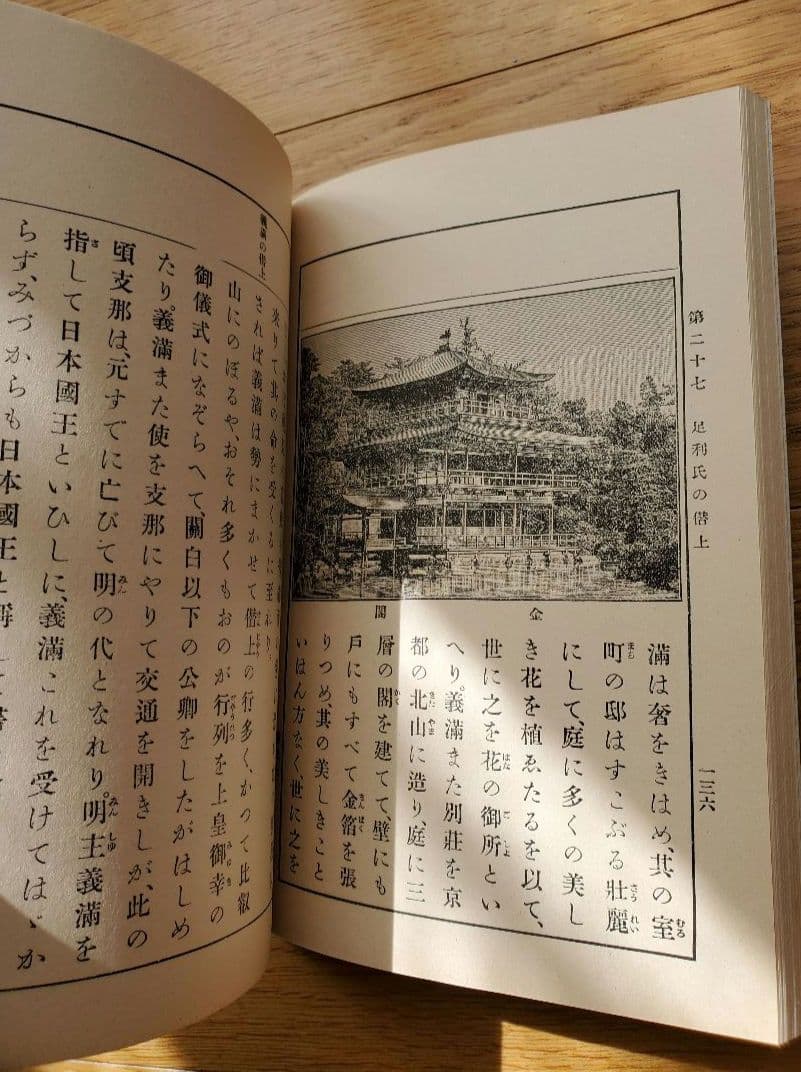 第二十七 足利氏の僭上
一三六
金
閣
滿は奢をきはめ、其の室
町の邸はすこぶる壯麗
にして、庭に多くの美し
き花を植ゑたるを以て、
世に之を花の御所とい
へり。義滿また別莊を京
都の北山に造り、庭に三
層の閣を建てて、壁にも
戶にもすべて金箔を張
りつめ、其の美しきこと
いはん方なく、世に之を
義滿の僭上
來りて其の命を受くるに至
されば義滿は勢にまかせて僭上の行多く、かつて比叡
山にのぼるや、おそれ多くもおのが行列を上皇御幸の
御儀式になぞらへて、關白以下の公卿をしたがはしめ
たり。義滿また使を支那にやりて交通を開きしが、此の
頃支那は、元すでに亡びて明の代となれり。明主義滿を
指して日本國王といひしに、義滿これを受けてはゞか
らず、みづからも日本國王と